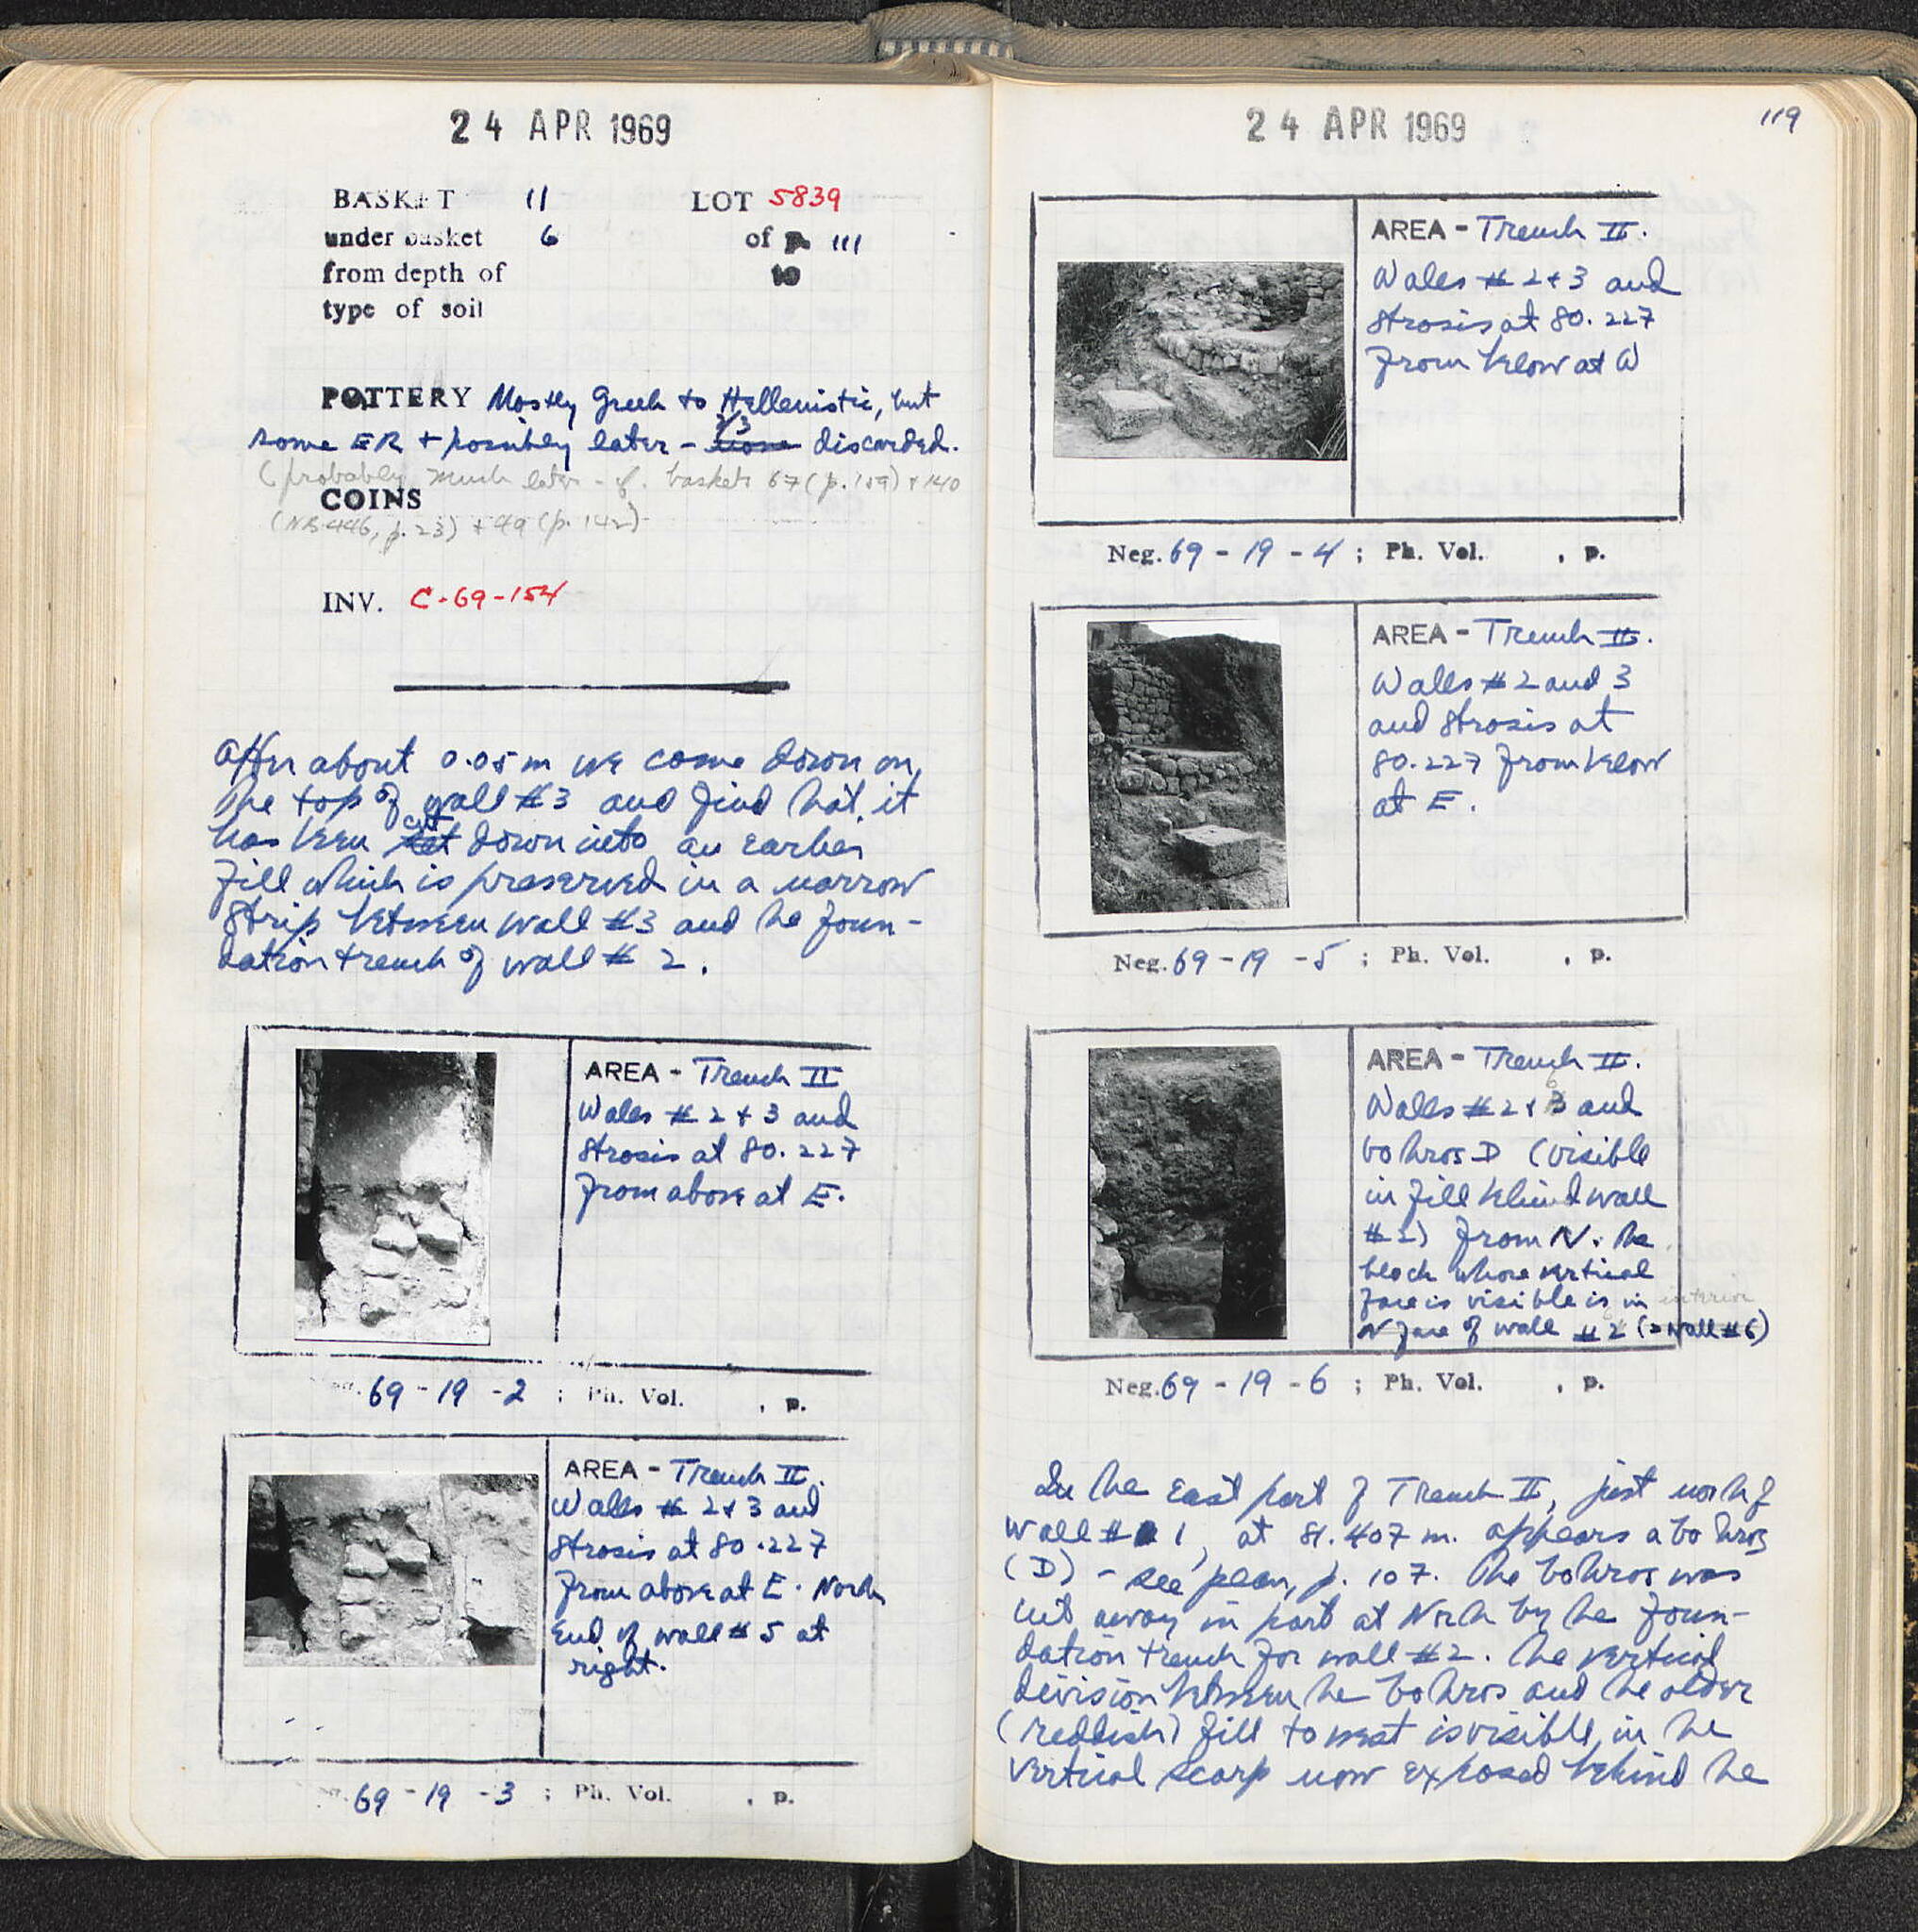 24 APR 1969
BASKET 11 LOT 5839
under basket 6 of p. 111
from depth of 10
type of soil
POTTERY Mostly Greek to Hellenistic, but
2/3
some ER + possibly later - none discarded.
(probably much later - cf. baskets 67 (p. 159) + 140
COINS
(NB 446, p. 23) + 49 (p. 142)
INV. C-69-154
After about 0.05 m we come down on
the top of wall #3 and find that it
cut
has been set down into an earlier
fill which is preserved in a narrow
strip between wall #3 and the foun-
dation trench of wall # 2.
AREA - Trench II
Walls # 2 + 3 and
strosis at 80.227
from above at E.
69 - 19 - 2 ; Ph. Vol. , p.
AREA - Trench II.
Walls # 2 + 3 and
strosis at 80.227
from above at E. North
End of wall # 5 at
right.
69 - 19 - 3 ; Ph. Vol. , p.
24 APR 1969
119
AREA - Trench II.
Walls # 2 + 3 and
strosis at 80.227
from below at W
Neg. 69 - 19 - 4 ; Ph. Vol. , p.
AREA - Trench II.
Walls # 2 and 3
and strosis at
80.227 from below
at E.
Neg. 69 - 19 - 5 ; Ph. Vol. , p.
AREA - Trench II.
Walls # 2 + 3 and
bothros D (visible
in fill behind wall
# 2) from N. The
block whose vertical
face is visible is in interior
N face of wall # 2 (= wall # 6)
Neg. 69 - 19 - 6 ; Ph. Vol. , p.
In the East part of Trench II, just north of
wall # 1, at 81.407 m. appears a bothros
(D) - see plan, p. 107. The bothros was
cut away in part at North by the foun-
dation trench for wall #2. The vertical
division between the bothros and the older
(reddish) fill to west is visible in the
vertical scarp now exposed behind the